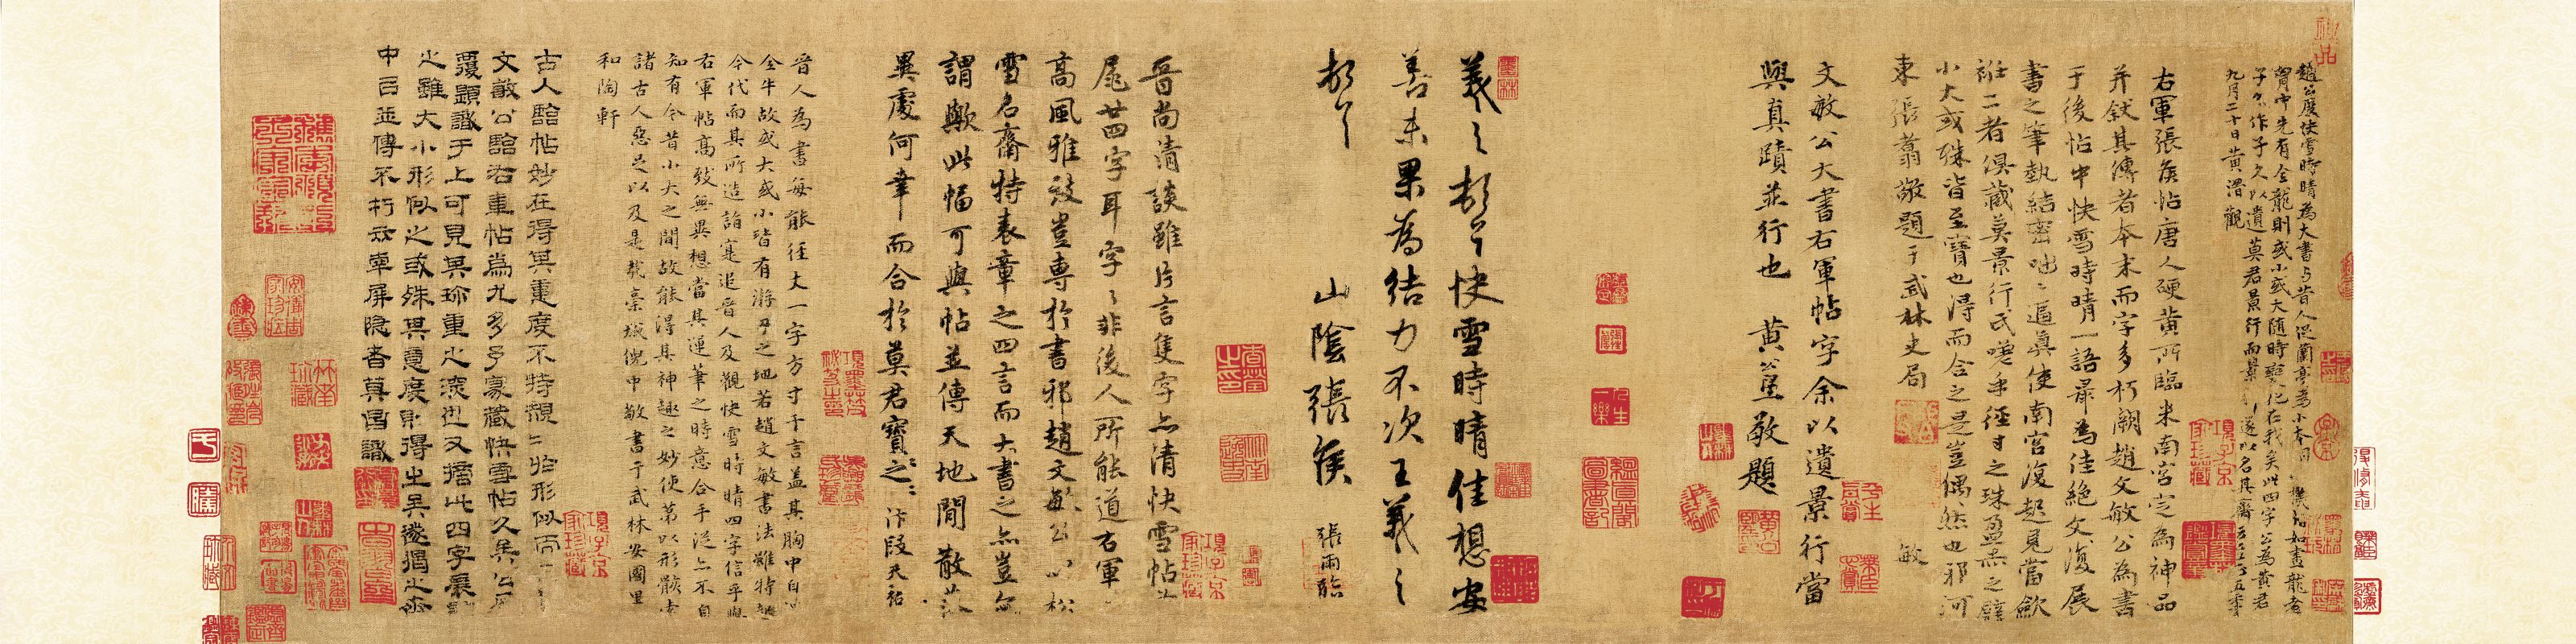 趙公展快雪時晴為大書與昔人促蘭亭為小本同
胷中先有全龍則或小或大隨時變化在我矣此四字公為黃君
子久作子久以遺莫君景行而景行遂以名其齋
九月二十日黃溍觀
右軍張矦帖唐人硬黃所臨米南宮定為神品
并敍其傳者本末而字多朽闕趙文敏公為書
于後帖中快雪時晴一語最為佳絕文敏復展
書之筆執結密咄咄逼真使南宮復起見當歛
衽二者俱藏莫景行氏嘆手徑寸之珠盈尺之璧
小大或殊皆至寶也得而合之是豈偶然也邪河
東張翥敬題于武林史局
文敏公大書右軍帖字余以遺景行當
與真蹟並行也 黃公望敬題
羲之頓首快雪時晴佳想安
善未果為結力不次王羲之
頓首 山陰張矦 張雨臨
晉尚清談雖片言隻字亦清快雪帖首
尾廿四字耳字字非後人所能道右軍
高風雅致豈專於書邪趙文敏公以松
雪名齋特表章之四言而大書之亦豈無
謂歟此幅可與帖並傳天地間 散
異處何幸而合於莫君寶之寶之 汴段天祐
晉人為書每能徑丈一字方寸千言蓋其胸中自
全牛故或大或小皆有游刃之地若趙文敏書法雖特
今代而其所造詣寔追晉人及觀快雪時晴四字信乎與
右軍帖高致無異想當其運筆之時意合手從亦不自
知有今昔小大之間故能得其神趣之妙使第以形骸求
諸古人惡足以及是哉橐城倪中敬書于武林安國里
和陶軒
古人臨帖妙在得其意度不特規規於形似而
文敏公臨右軍帖為尤多予家藏快雪帖久矣公
覆題識于上可見其珍重之深迨又摘此四字展
之雖大小形似之或殊其意度則得之矣遂揭之齋
中目並傳不朽云華屏隱者莫昌識